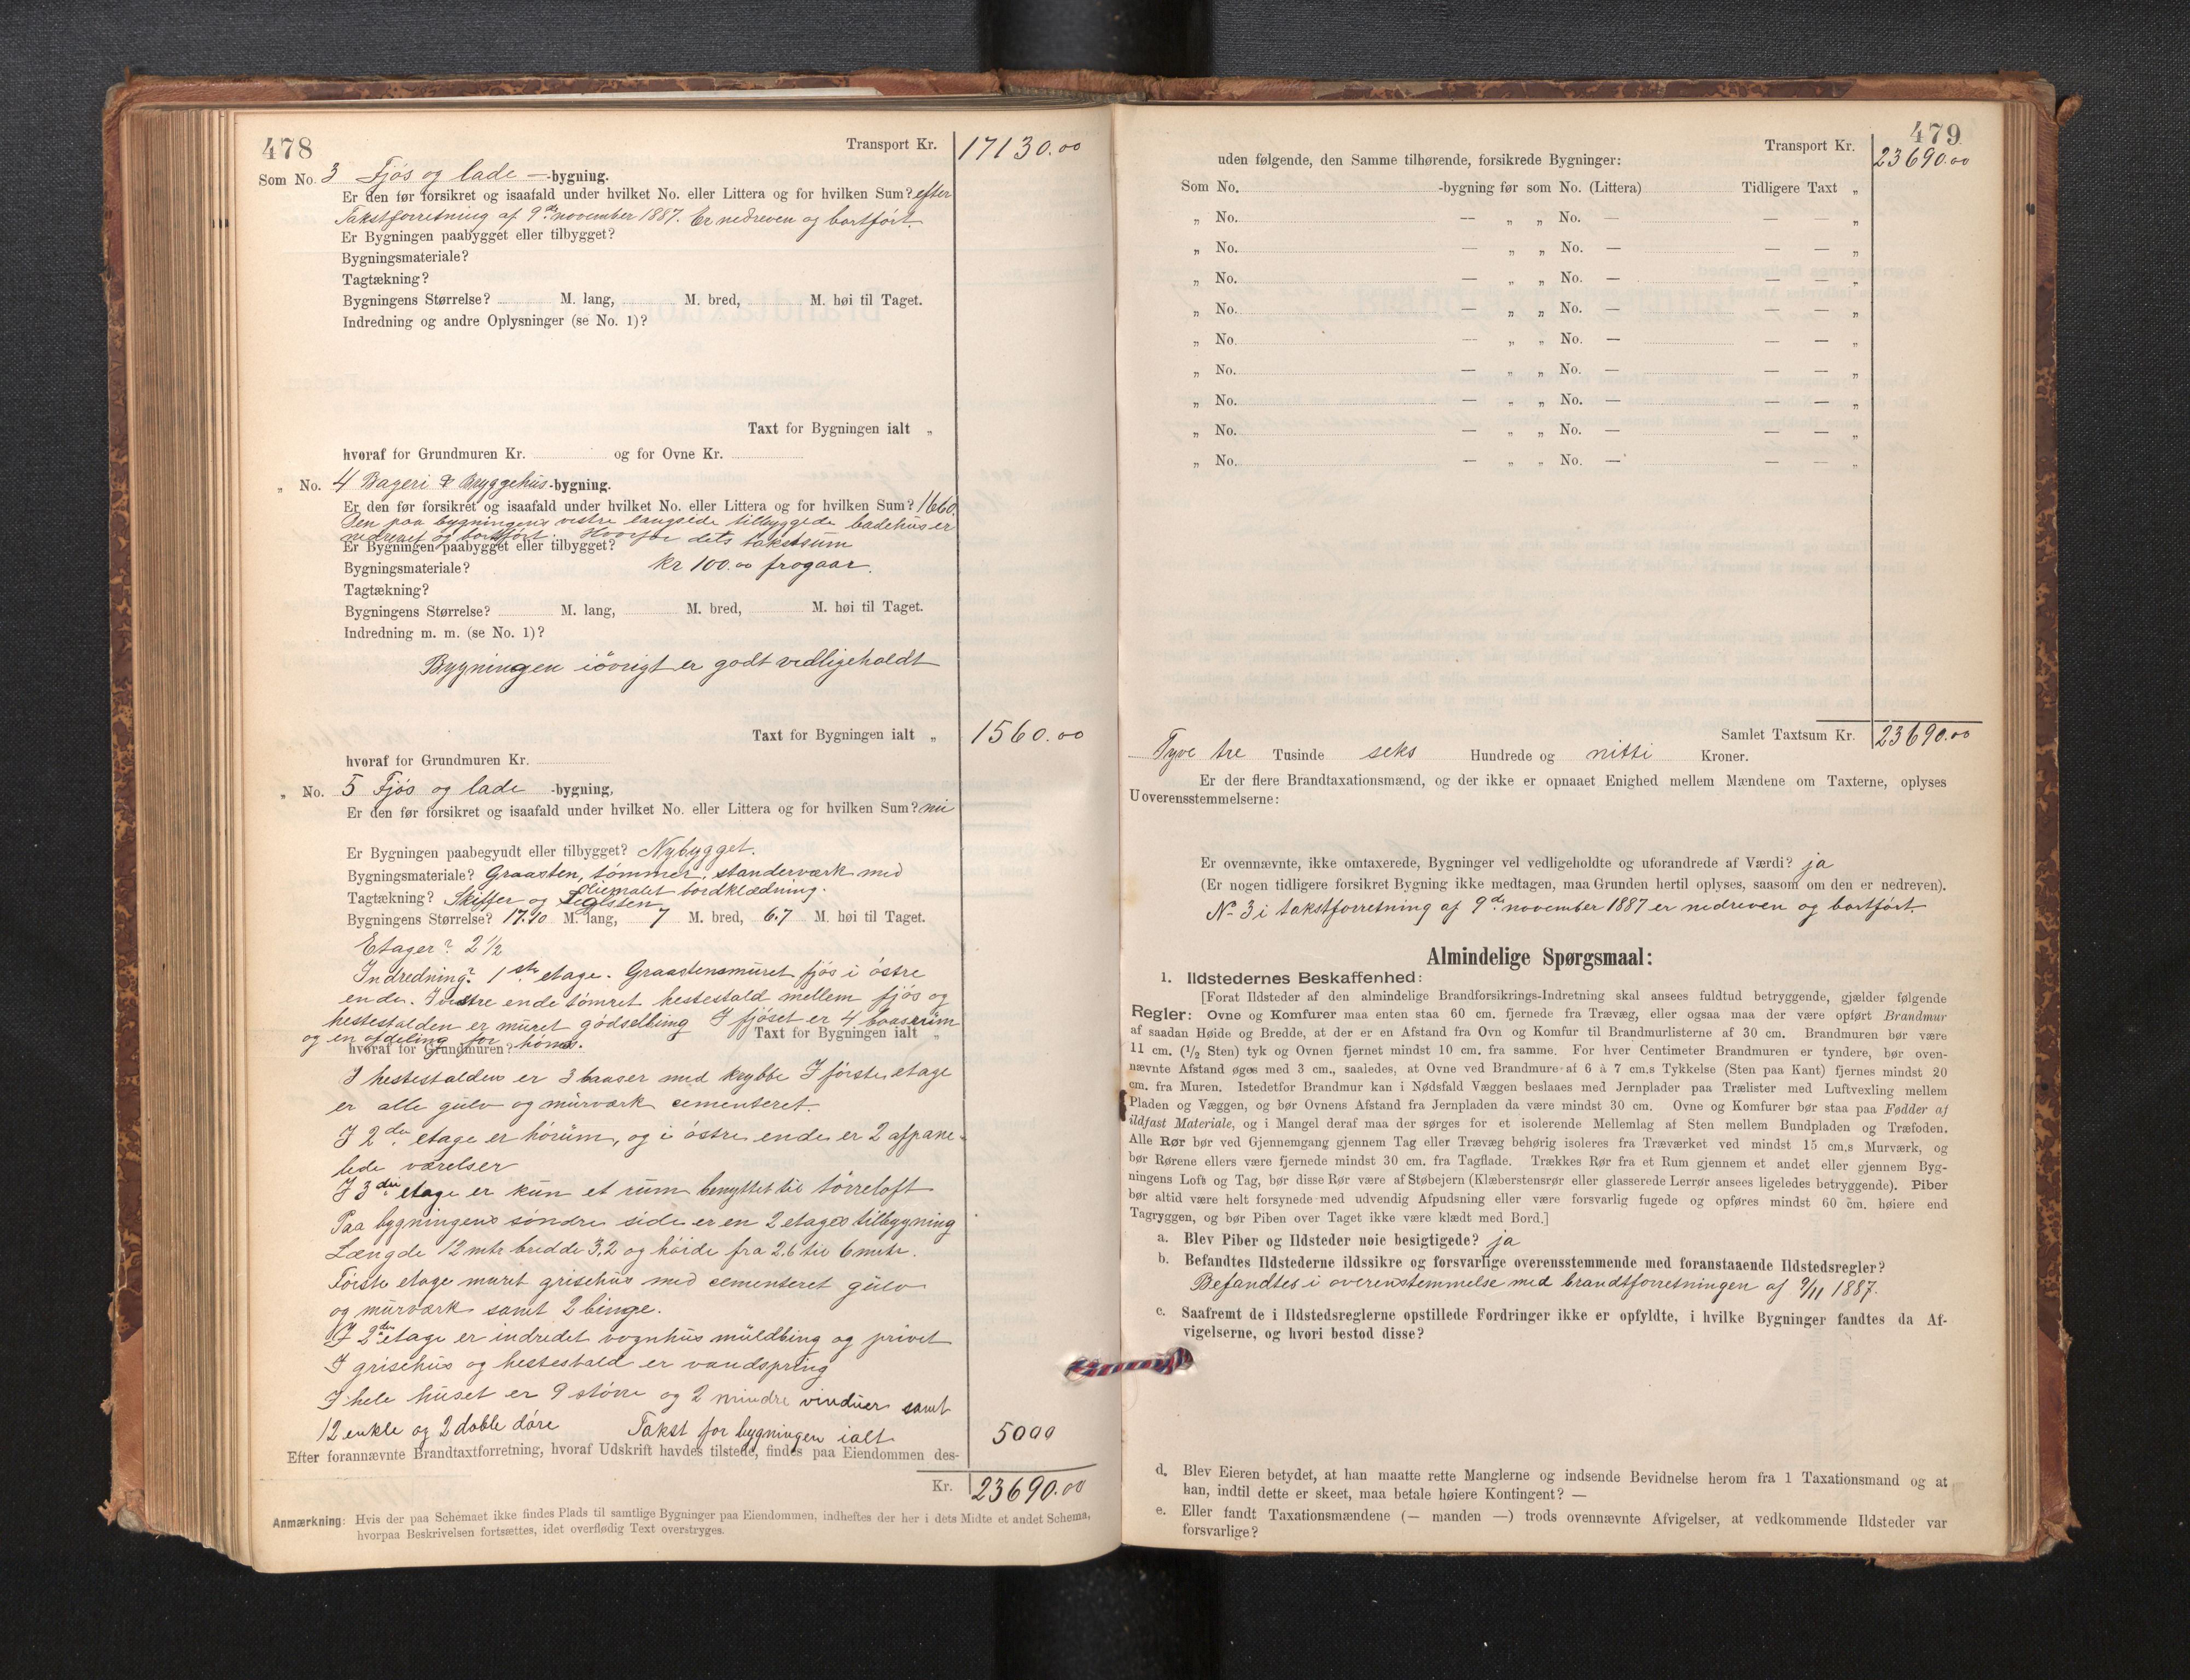 478
Transport Kr. 17130.00
Som No. 3 Fjøs og lade -bygning.
Er den før forsikret og isaafald under hvilket No. eller Littera og for hvilken Sum? efter
Takstforretning af 9de november 1887. Er nedreven og bortført.
Er Bygningen paabygget eller tilbygget?
Bygningsmateriale?
Tagtækning?
Bygningens Størrelse? M. lang, M. bred, M. høi til Taget.
Indredning og andre Oplysninger (se No. 1)?
Taxt for Bygningen ialt „
hvoraf for Grundmuren Kr. og for Ovne Kr.
„ No. 4 Bageri & Bryggehus-bygning.
Er den før forsikret og isaafald under hvilket No. eller Littera og for hvilken Sum? 1660.
Den paa bygningens vestre langside tilbyggede badehus er
nedrevet og bortført. Hvorfor dets takstsum
Er Bygningen paabygget eller tilbygget?
Bygningsmateriale? kr 100.00 fragaar.
Tagtækning?
Bygningens Størrelse? M. lang, M. bred, M. høi til Taget.
Indredning m. m. (se No. 1)?
Bygningen iøvrigt er godt vedligeholdt
Taxt for Bygningen ialt „ 1560.00
hvoraf for Grundmuren Kr.
„ No. 5 Fjøs og lade -bygning,
Er den før forsikret og isaafald under hvilket No. eller Littera og for hvilken Sum? nei
Er Bygningen paabegyudt eller tilbygget? Nybygget.
Bygningsmateriale? Graasten, tømmer, standerværk med
oliemalet bordklædning.
Tagtækning? Skiffer og Teglsten
Bygningens Størrelse? 17.90 M. lang, 7 M. bred, 6.7 M. høi til Taget.
Etager? 2 1/2
Indredning? 1ste etage. Graastensmuret fjøs i østre
ende. I vestre ende tømret hestestald mellem fjøs og
hestestalden er muret gødselbing I fjøset er 4 baaserum
og en afdeling for høns.
Taxt for Bygningen ialt „
hvoraf for Grundmuren?
I hestestalden er 3 baaser med krybbe I første etage
er alle gulv og murværk cementeret.
I 2den etage er hørum, og i østre ende er 2 afpane-
lede værelser
I 3die etage er kun et rum benyttet til tørreloft
Paa bygningens søndre side er en 2 etages tilbygning
Længde 12 mtr bredde 3,2 og høide fra 2.6 til 6 mtr.
Første etage muret grisehus med cementeret gulv
og murværk samt 2 binge.
I 2den etage er indredet vognhus muldbing og privet
I grisehus og hestestald er vandspring
I hele huset er 9 større og 2 mindre vinduer samt
12 enkle og 2 doble døre Takst for bygningen ialt 5000
Efter forannævnte Brandtaxtforretning, hvoraf Udskrift havdes tilstede, findes paa Eiendommen des-
Kr. 23690.00
Anmærkning: Hvis der paa Schemaet ikke findes Plads til samtlige Bygninger paa Eiendommen, indheftes der her i dets Midte et andet Schema,
hvorpaa Beskrivelsen fortsættes, idet overflødig Text overstryges.
479
Transport Kr. 23690.00
uden følgende, den Samme tilhørende, forsikrede Bygninger:
Som No. -bygning før som No. (Littera) Tidligere Taxt „
„ No. — „ „ No. — — — „
„ No. — „ „ No. — — — „
„ No. — „ „ No. — — — „
„ No. — „ „ No. — — — „
„ No. — „ „ No. — — — „
„ No. — „ „ No. — — — „
„ No. — „ „ No. — — — „
„ No. — „ „ No. — — — „
„ No. — „ „ No. — — — „
Samlet Taxtsum Kr. 23690.00
Tyve tre Tusinde seks Hundrede og nitti Kroner.
Er der flere Brandtaxationsmænd, og der ikke er opnaaet Enighed mellem Mændene om Taxterne, oplyses
Uoverensstemmelserne:
Er ovennævnte, ikke omtaxerede, Bygninger vel vedligeholdte og uforandrede af Værdi? ja
(Er nogen tidligere forsikret Bygning ikke medtagen, maa Grunden hertil oplyses, saasom om den er nedreven).
No 3 i takstforretning af 9de november 1887 er nedreven og bortført.
Almindelige Spørgsmaal:
1. Ildstedernes Beskaffenhed:
[Forat Ildsteder af den almindelige Brandforsikrings-Indretning skal ansees fuldtud betryggende, gjælder følgende
Regler: Ovne og Komfurer maa enten staa 60 cm. fjernede fra Trævæg, eller ogsaa maa der være opført Brandmur
af saadan Høide og Bredde, at der er en Afstand fra Ovn og Komfur til Brandmurlisterne af 30 cm. Brandmuren bør være
11 cm. (1/2 Sten) tyk og Ovnen fjernet mindst 10 cm. fra samme. For hver Centimeter Brandmuren er tyndere, bør oven-
nævnte Afstand øges med 3 cm., saaledes, at Ovne ved Brandmure af 6 à 7 cm.s Tykkelse (Sten paa Kant) fjernes mindst 20
cm. fra Muren. Istedetfor Brandmur kan i Nødsfald Væggen beslaaes med Jernplader paa Trælister med Luftvexling mellem
Pladen og Væggen, og bør Ovnens Afstand fra Jernpladen da være mindst 30 cm. Ovne og Komfurer bør staa paa Fødder af
ildfast Materiale, og i Mangel deraf maa der sørges for et isolerende Mellemlag af Sten mellem Bundpladen og Træfoden.
Alle Rør bør ved Gjennemgang gjennem Tag eller Trævæg behørig isoleres fra Træværket ved mindst 15 cm.s Murværk, og
bør Rørene ellers være fjernede mindst 30 cm. fra Tagflade. Trækkes Rør fra et Rum gjennem et andet eller gjennem Byg-
ningens Loft og Tag, bør disse Rør være af Støbejern (Klæberstensrør eller glasserede Lerrør ansees ligeledes betryggende). Piber
bør altid være helt forsynede med udvendig Afpudsning eller være forsvarlig fugede og opføres mindst 60 cm. høiere end
Tagryggen, og bør Piben over Taget ikke være klædt med Bord.]
a. Blev Piber og Ildsteder nøie besigtigede? ja
b. Befandtes Ildstederne ildssikre og forsvarlige overensstemmende med foranstaaende Ildstedsregler?
Befandtes i overenstemmelse med brandtforretningen af 9/11 1887.
c. Saafremt de i Ildstedsreglerne opstillede Fordringer ikke er opfyldte, i hvilke Bygninger fandtes da Af-
vigelserne, og hvori bestod disse?
d. Blev Eieren betydet, at han maatte rette Manglerne og indsende Bevidnelse herom fra 1 Taxationsmand og at
han, indtil dette er skeet, maa betale høiere Kontingent? —
e. Eller fandt Taxationsmændene (— manden —) trods ovennævnte Afvigelser, at vedkommende Ildsteder var
forsvarlige?